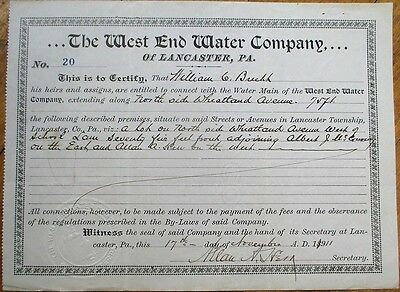 ...The West End Water Company,...
Of LANCASTER, PA.
No. 20
This is to Certify, That William C. Buckh
his heirs and assigns, are entitled to connect with the Water Main of the West End Water
Company, extending along North side Wheatland Avenue. 75 ft
the following described premises, situate on said Streets or Avenues in Lancaster Township,
Lancaster, Co., Pa., viz: A lot on North side Wheatland Avenue West of
School Lane seventy five feet front, adjoining Albert J.
on the East and Allan A. Herr on the West.
All connections, however, to be made subject to the payment of the fees and the observance
of the regulations prescribed in the By-Laws of said Company.
Witness the seal of said Company and the hand of its Secretary at Lan-
caster, Pa., this 17th day of November A. D. 1911
Allan A. Herr
Secretary.